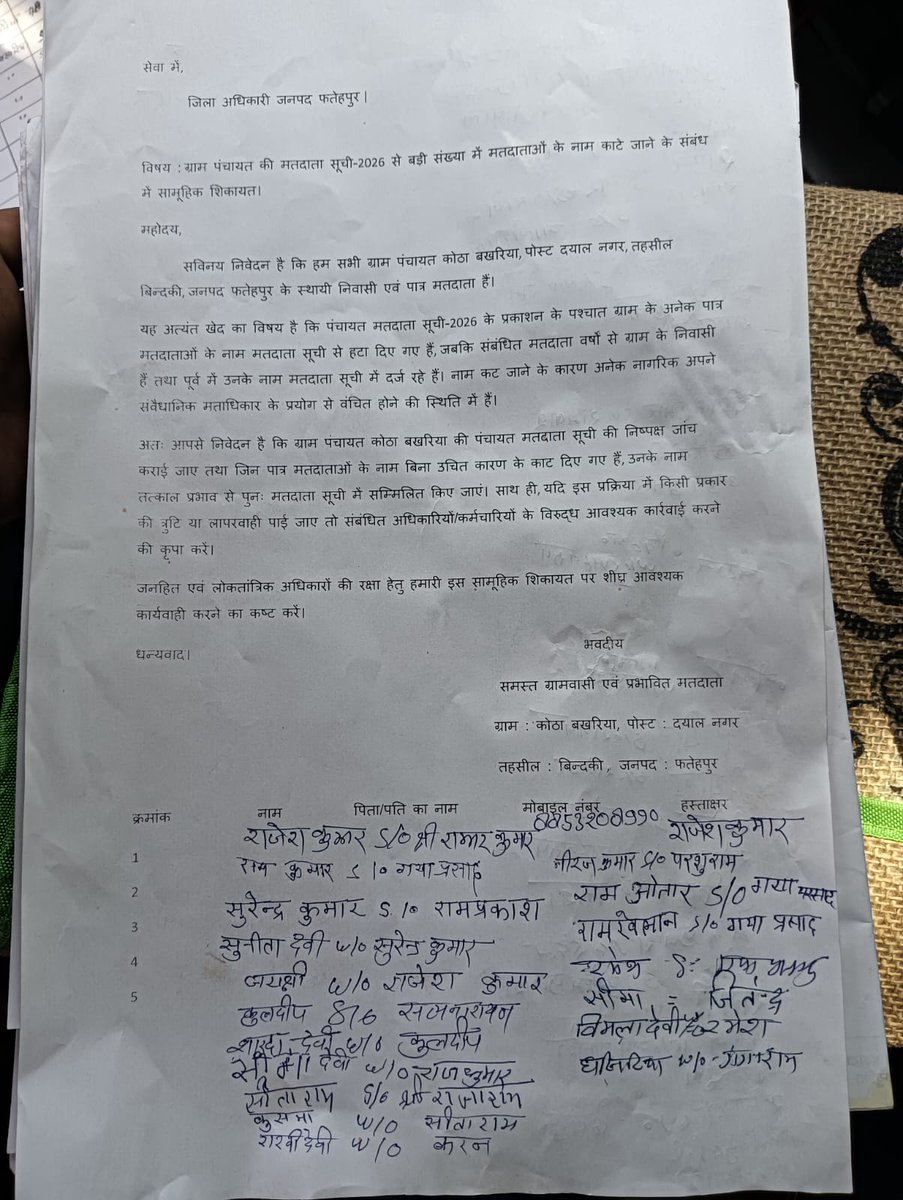 सेवा में,
जिला अधिकारी जनपद फतेहपुर।
विषय : ग्राम पंचायत की मतदाता सूची-2026 से बड़ी संख्या में मतदाताओं के नाम काटे जाने के संबंध
में सामूहिक शिकायत।
महोदय,
सविनय निवेदन है कि हम सभी ग्राम पंचायत कोठा बखरिया, पोस्ट दयाल नगर, तहसील
बिन्दकी, जनपद फतेहपुर के स्थायी निवासी एवं पात्र मतदाता हैं।
यह अत्यंत खेद का विषय है कि पंचायत मतदाता सूची-2026 के प्रकाशन के पश्चात ग्राम के अनेक पात्र
मतदाताओं के नाम मतदाता सूची से हटा दिए गए हैं, जबकि संबंधित मतदाता वर्षों से ग्राम के निवासी
हैं तथा पूर्व में उनके नाम मतदाता सूची में दर्ज रहे हैं। नाम कट जाने के कारण अनेक नागरिक अपने
संवैधानिक मताधिकार के प्रयोग से वंचित होने की स्थिति में हैं।
अतः आपसे निवेदन है कि ग्राम पंचायत कोठा बखरिया की पंचायत मतदाता सूची की निष्पक्ष जांच
कराई जाए तथा जिन पात्र मतदाताओं के नाम बिना उचित कारण के काट दिए गए हैं, उनके नाम
तत्काल प्रभाव से पुनः मतदाता सूची में सम्मिलित किए जाएं। साथ ही, यदि इस प्रक्रिया में किसी प्रकार
की त्रुटि या लापरवाही पाई जाए तो संबंधित अधिकारियों/कर्मचारियों के विरुद्ध आवश्यक कार्रवाई करने
की कृपा करें।
जनहित एवं लोकतांत्रिक अधिकारों की रक्षा हेतु हमारी इस सामूहिक शिकायत पर शीघ्र आवश्यक
कार्यवाही करने का कष्ट करें।
धन्यवाद।
भवदीय
समस्त ग्रामवासी एवं प्रभावित मतदाता
ग्राम : कोठा बखरिया, पोस्ट : दयाल नगर
तहसील : बिन्दकी, जनपद : फतेहपुर
क्रमांक नाम पिता/पति का नाम मोबाइल नंबर हस्ताक्षर
राजेश कुमार S/O श्री कुमार राजेश कुमार
1 कुमार S/O गया प्रसाद नीरज कुमार S/O परशुराम
2 सुरेन्द्र कुमार S/O रामप्रकाश राम औतार S/O गया प्रसाद
3 सुनीता देवी W/O सुरेन्द्र कुमार S/O गया प्रसाद
4 जयश्री W/O राजेश कुमार
5 कुलदीप S/O सीमा = जितेन्द्र
शारदा देवी W/O कुलदीप विमला देवी रमेश
सीमा देवी W/O राजकुमार W/O
सीताराम S/O श्री राजाराम
कुसमा W/O सीताराम
देवी W/O करन